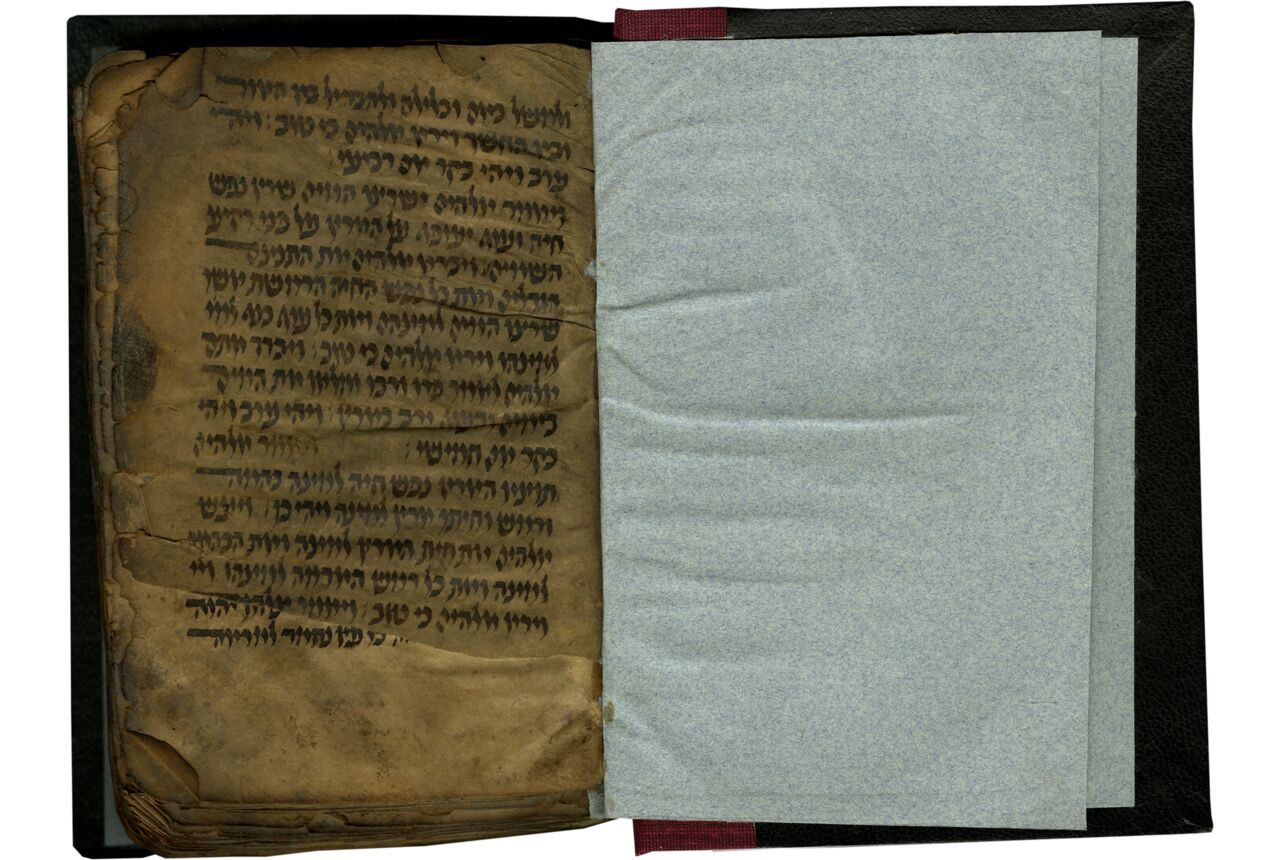 ולמשל ביום ובלילה ולהבדיל בין האור
ובין החשך וירא אלהים כי טוב : ויהי
ערב ויהי בקר יום רביעי :
ויאמר אלהים ישרצו המים שרץ נפש
חיה ועוף יעופף על הארץ על פני רקיע
השמים : ויברא אלהים את התנינם
הגדלים ואת כל נפש החיה הרמשת אשר
שרצו המים למינהם ואת כל עוף כנף למי
למינהו וירא אלהים כי טוב : ויברך אתם
אלהים לאמר פרו ורבו ומלאו את המים
בימים והעוף ירב בארץ : ויהי ערב ויהי
בקר יום חמישי : ויאמר אלהים
תוצא הארץ נפש חיה למינה בהמה
ורמש וחיתו ארץ למינה ויהי כן : ויעש
אלהים את חית הארץ למינה ואת הבהמה
למינה ואת כל רמש האדמה למינהו וי
וירא אלהים כי טוב : ויאמר